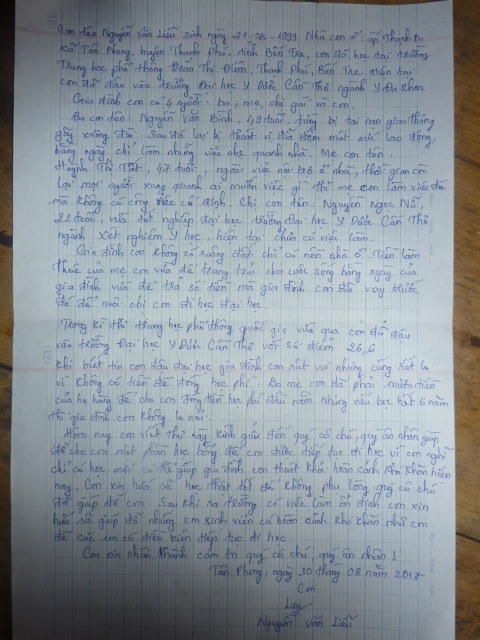 Con tên Nguyễn Văn Liễu sinh ngày 21-08-1999. Nhà con ở ấp Thạnh
xã Tân Phong, huyện Thạnh Phú, tỉnh Bến Tre, con đã học tại trường
Trung học phổ thông Đoàn Thị Điểm, Thạnh Phú, Bến Tre, hiện tại
con đã đậu vào trường Đại học Y Dược Cần Thơ ngành Y Đa Khoa
Gia đình con có 4 người: ba, mẹ, chị gái và con.
Ba con tên: Nguyễn Văn Bình, 49 tuổi, từng bị tai nạn giao thông
gãy xương đùi. Sau đó lại bị thoát vị đĩa đệm mất sức lao động,
hằng ngày chỉ làm những việc nhẹ quanh nhà. Mẹ con tên:
Huỳnh Thị 47 tuổi, ngoài việc nội trợ ở nhà, thời gian còn
lại mọi người xung quanh ai mướn việc gì thì mẹ con làm việc đó
mà không có công việc cố định. Chị con tên: Nguyễn Ngọc Nữ,
22 tuổi, vừa tốt nghiệp đại học trường Đại học Y Dược Cần Thơ
ngành Xét nghiệm Y học, hiện tại chưa có việc làm.
Gia đình con không có ruộng đất chỉ có nền nhà ở. Tiền làm
thuê của mẹ con vừa để trang trải cho cuộc sống hằng ngày của
gia đình vừa để trả số tiền mà gia đình con đã vay trước
đó để nuôi chị con đi học đại học.
Trong kì thi trung học phổ thông quốc gia vừa qua con đã đậu
vào trường Đại học Y Dược Cần Thơ với số điểm 26,6
Khi biết tin con đậu đại học gia đình con rất vui nhưng cũng rất lo
vì không có tiền để đóng học phí. Ba mẹ con đã phải mượn tiền
của họ hàng để cho con đóng tiền học phí đầu năm. Nhưng nếu học hết 6 năm
thì gia đình con không lo nổi.
Hôm nay con viết thư này kính gửi đến quý cô chú, quý ân nhân giúp
đỡ cho con một phần học bổng để con được tiếp tục đi học vì con nghĩ
chỉ có học mới có thể giúp gia đình con thoát khỏi hoàn cảnh khó khăn hiện
nay. Con xin hứa sẽ học thật tốt để không phụ lòng quý cô chú
đã giúp đỡ con. Sau khi ra trường có việc làm ổn định con xin
hứa sẽ giúp đỡ những em sinh viên có hoàn cảnh khó khăn như con
để các em có điều kiện tiếp tục đi học.
Con xin chân thành cảm ơn quý cô chú, quý ân nhân!
Tân Phong, ngày 30 tháng 08 năm 2017
Con
Liễu
Nguyễn Văn Liễu